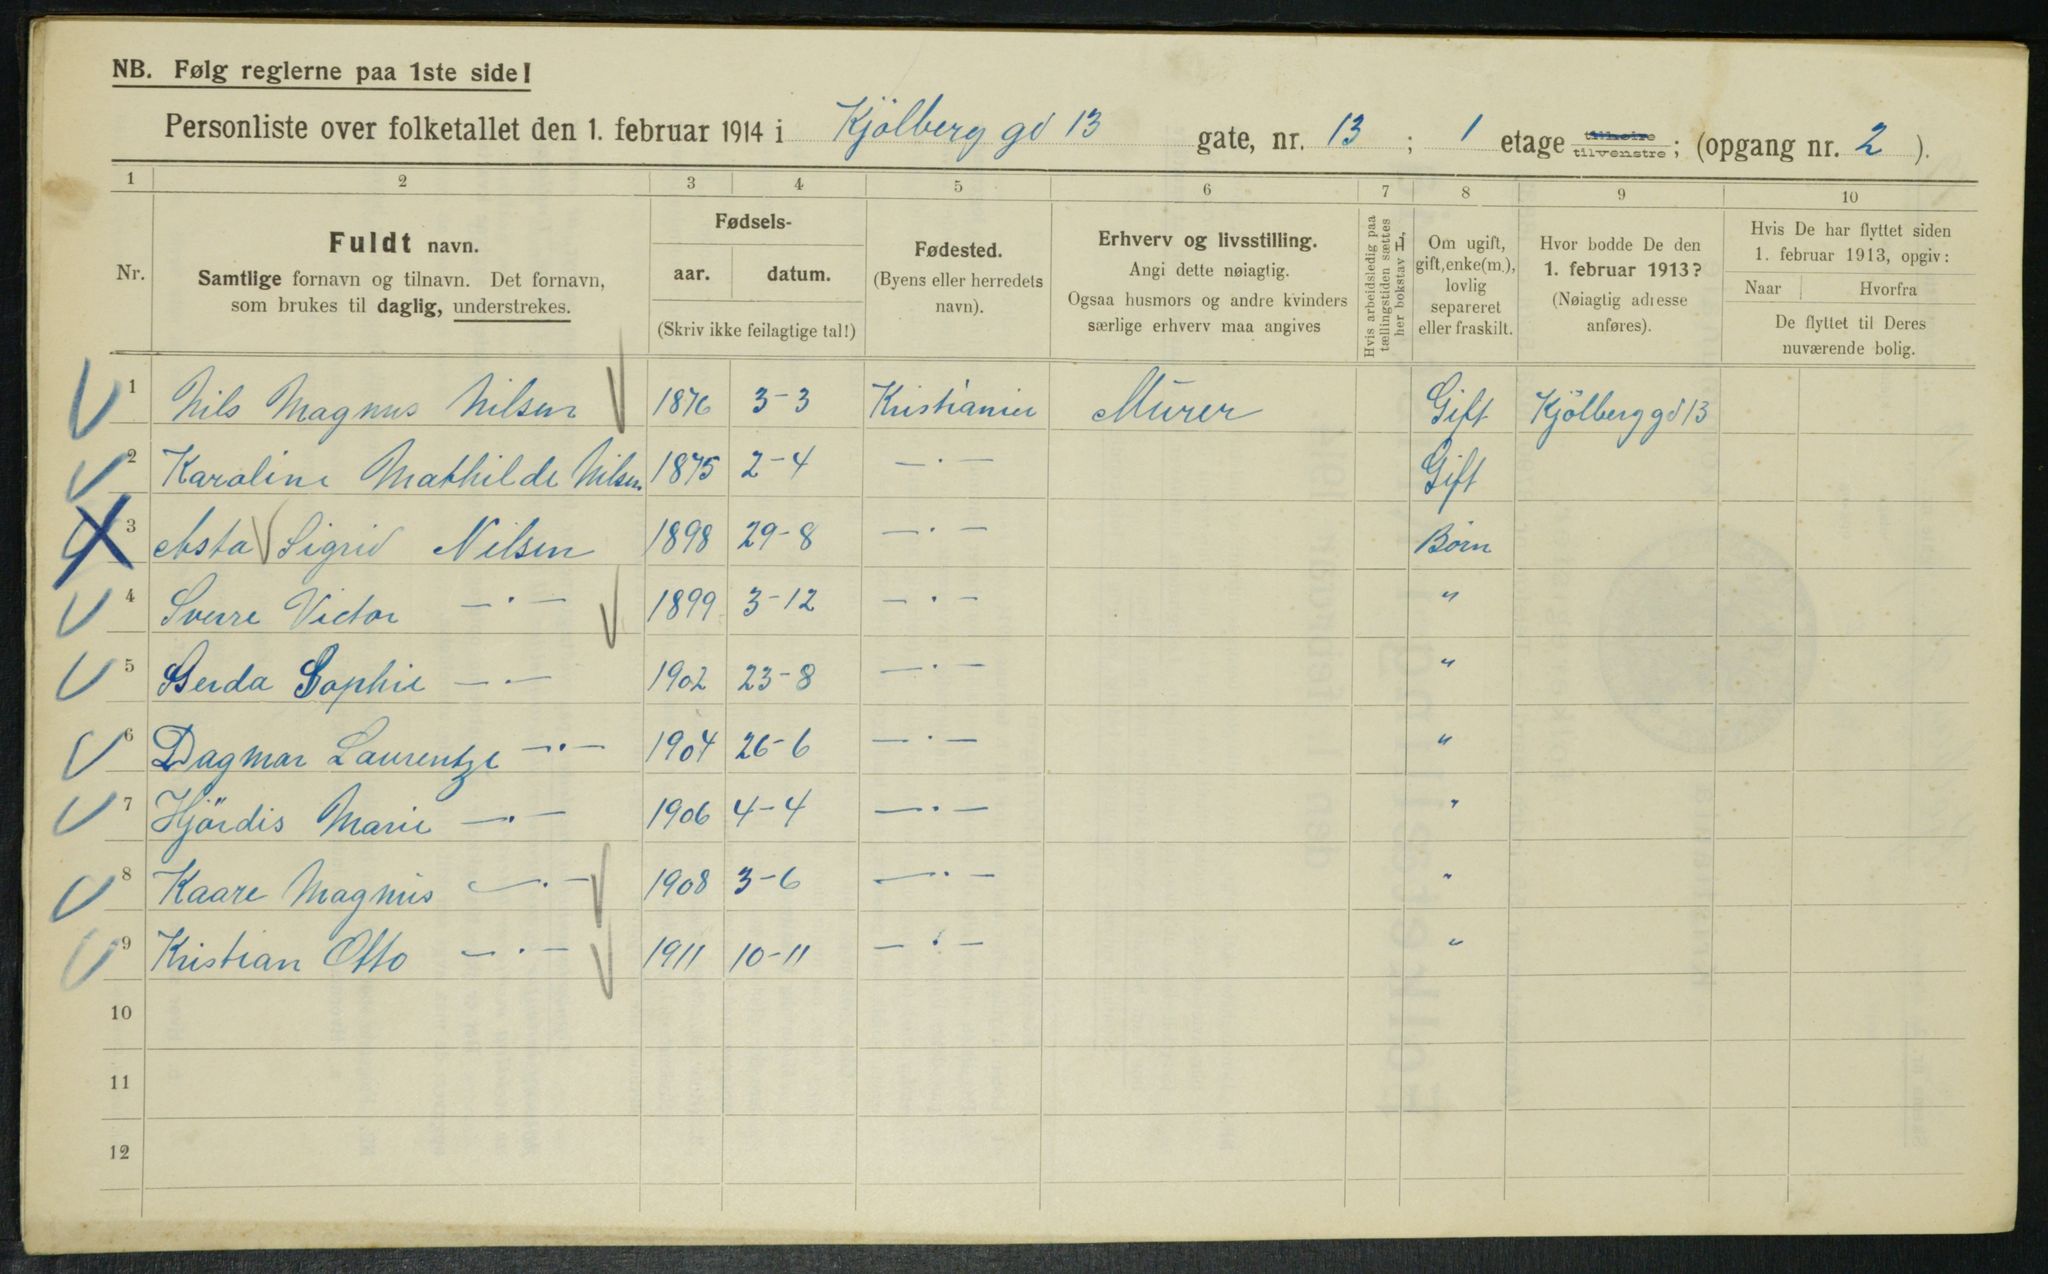 NB. Følg reglerne paa 1ste side!
Personliste over folketallet den 1. februar 1914 i Kjölberg gd 13 gate, nr. 13 ; 1 etage tilhøire tilvenstre; (opgang nr. 2 ).
1 2 3 4 5 6 7 8 9 10
Nr.
Fuldt navn.
Samtlige fornavn og tilnavn. Det fornavn,
som brukes til daglig, understrekes.
Fødsels-
aar. datum.
(Skriv ikke feilagtige tal!)
Fødested.
(Byens eller herredets
navn).
Erhverv og livsstilling.
Angi dette nøiagtig.
Ogsaa husmors og andre kvinders
særlige erhverv maa angives
Hvis arbeidsledig paa
tællingstiden sættes
her bokstav L.
Om ugift,
gift, enke(m.),
lovlig
separeret
eller fraskilt.
Hvor bodde De den
1. februar 1913?
(Nøiagtig adresse
anføres).
Hvis De har flyttet siden
1. februar 1913, opgiv:
Naar Hvorfra
De flyttet til Deres
nuværende bolig.
1 Nils Magnus Nilsen 1876 3-3 Kristiania Murer Gift Kjölberg gd 13
2 Karoline Mathilde Nilsen 1875 2-4 —·— Gift
3 Asta Sigrid Nilsen 1898 29-8 —·— Børn
4 Sverre Victor —·— 1899 3-12 —·— "
5 Gerda Sophie —·— 1902 23-8 —·— "
6 Dagmar Laurentze —·— 1904 26-6 —·— "
7 Hjördis Marie —·— 1906 4-4 —·— "
8 Kaare Magnus —·— 1908 3-6 —·— "
9 Kristian Otto —·— 1911 10-11 —·— "
10
11
12